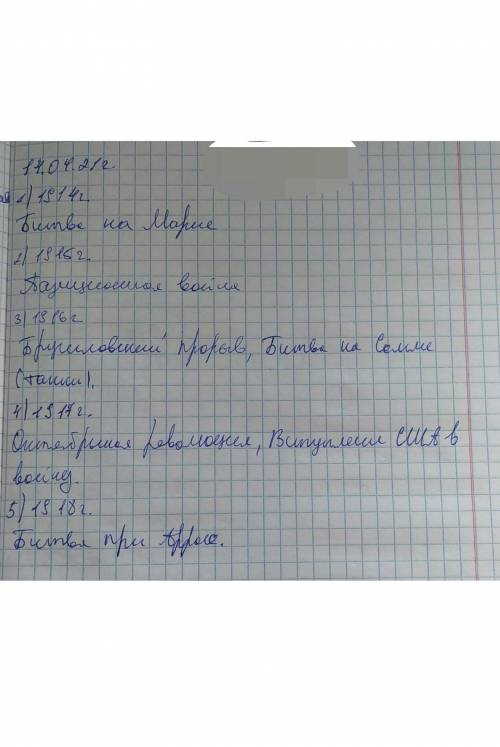 17.04.21г.
1) 1914г.
Битва на Марне
2) 1915г.
Позиционная война
3) 1916г
Брусиловский прорыв, Битва на Сомме
(танки).
4) 1917г.
Октябрьская революция, Вступление США в
войну.
5) 1918г.
Битва при Аррасе.